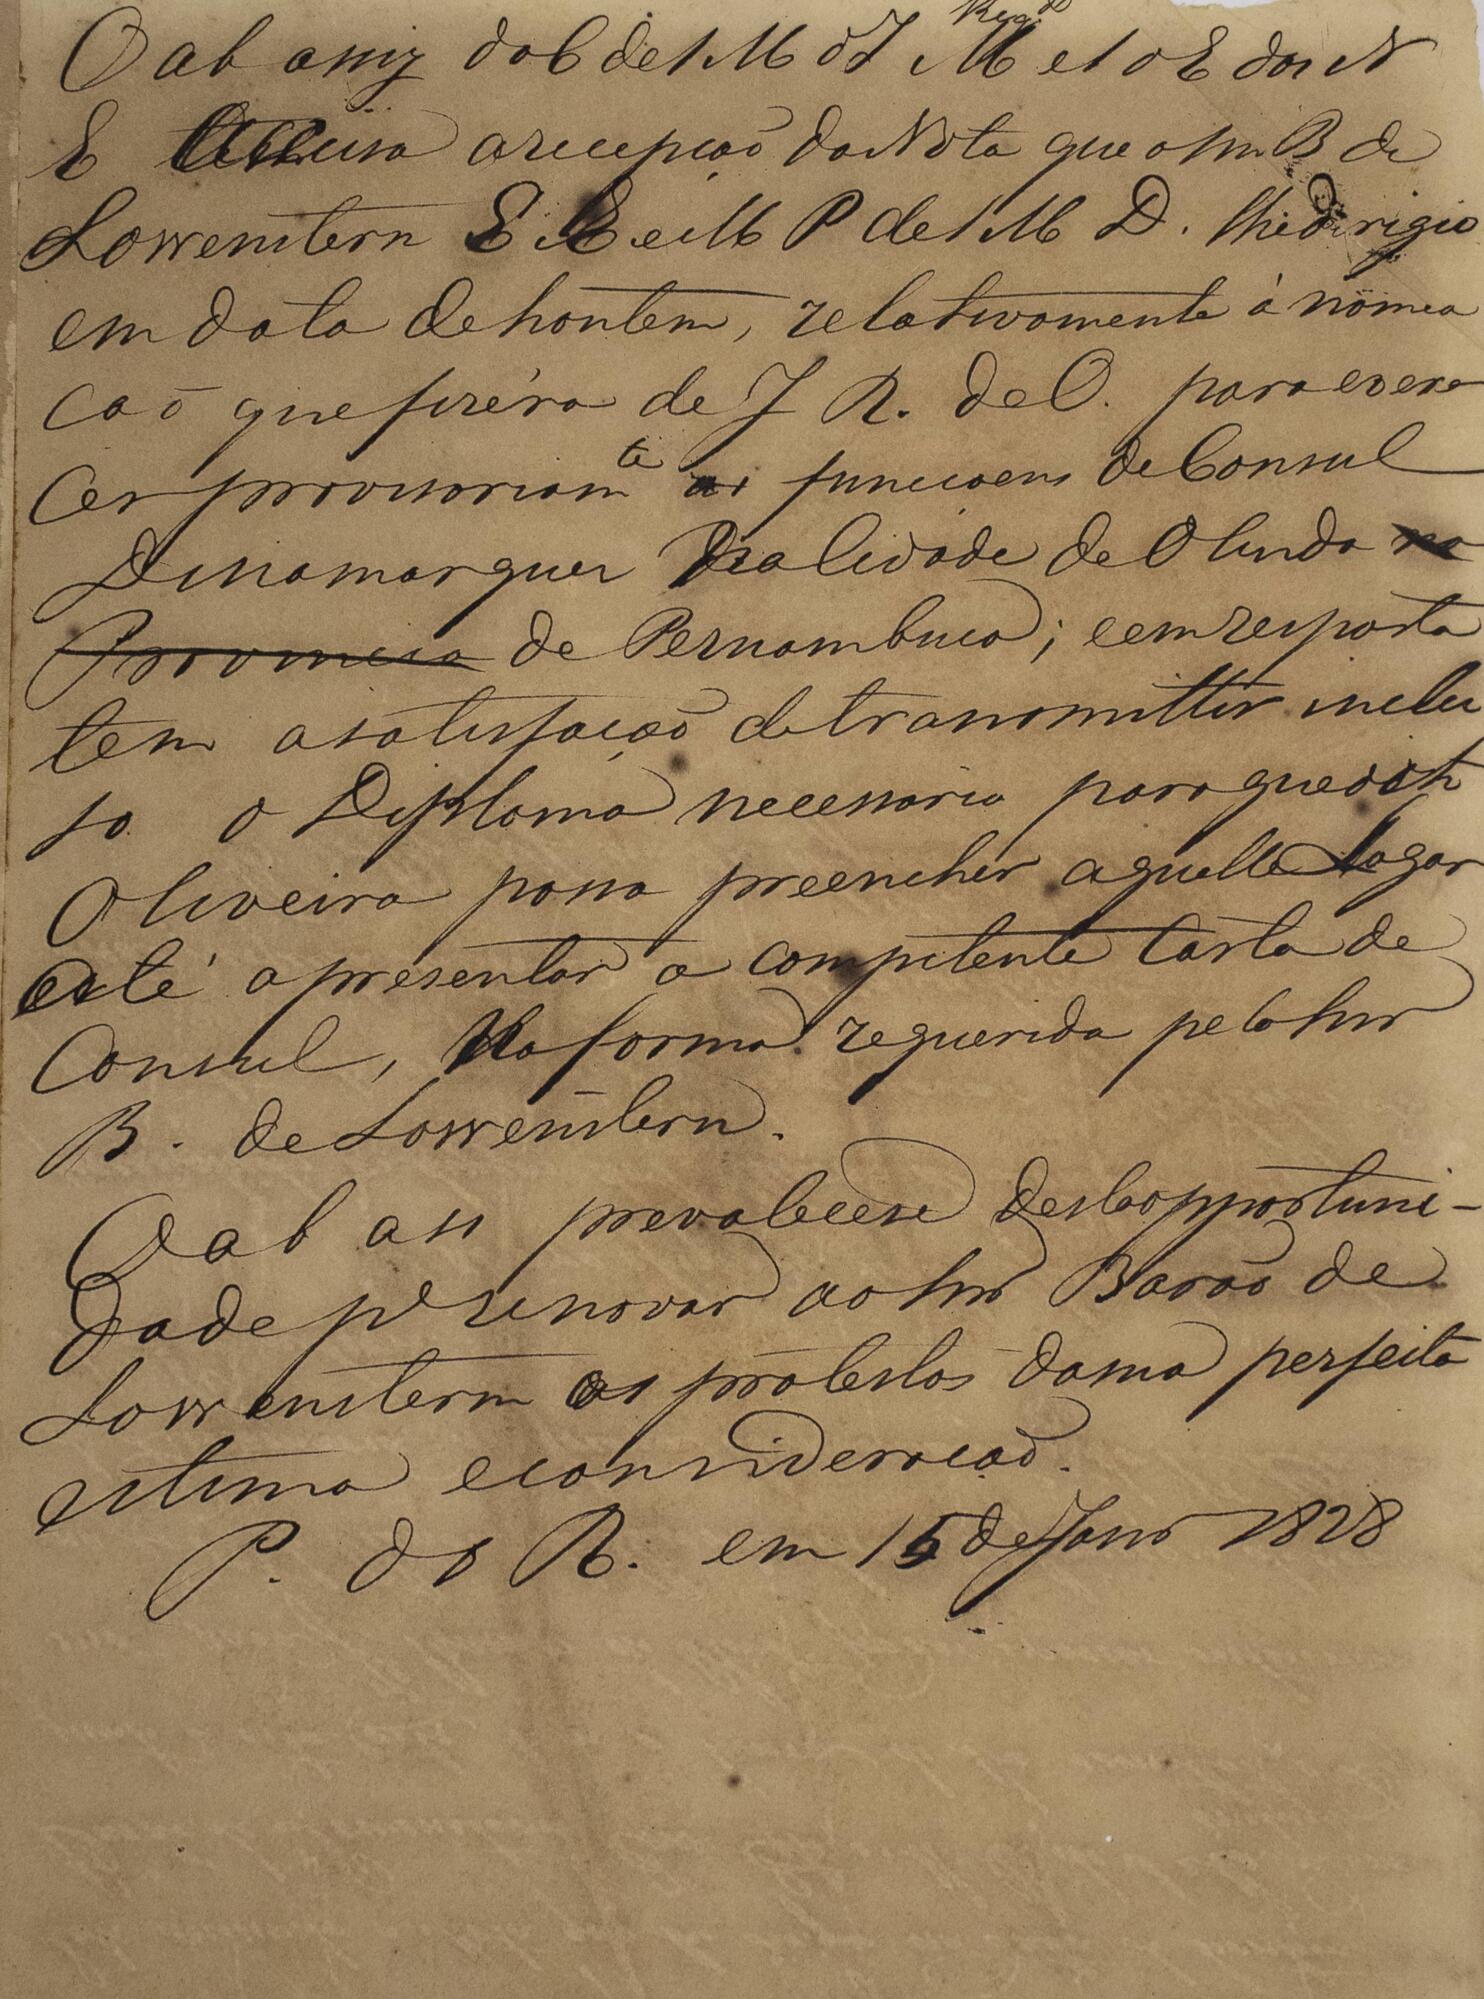 Regdo
O ab assig do C de S M o I M e S d E dos N
E accusa a recepçaõ da Nota que o Snr B de
Lowenstern E E e M P de S M D. lhe dirigio
em data de hontem, relativamente á nomea
caõ que fizéra de J R. de O. para exer
cer provisoriamte as funccoens de Consul
Dinamarquez na Cidade de Olinda na
Provincia de Pernambuco; e em resposta
tem a satisfaçaõ de transmittir inclu
so o Diploma necessario para que o dito
Oliveira possa preencher aquelle Logar
até apresentar a competente Carta de
Consul, na forma requerida pelo Snr
B. de Lowenstern.
O ab ass prevalece-se desta opportuni-
dade pa renovar ao Snr Baraõ de
Lowenstern os protestos da sua perfeita
estima e consideracaõ.
P. do R. em 15 de Janro 1828